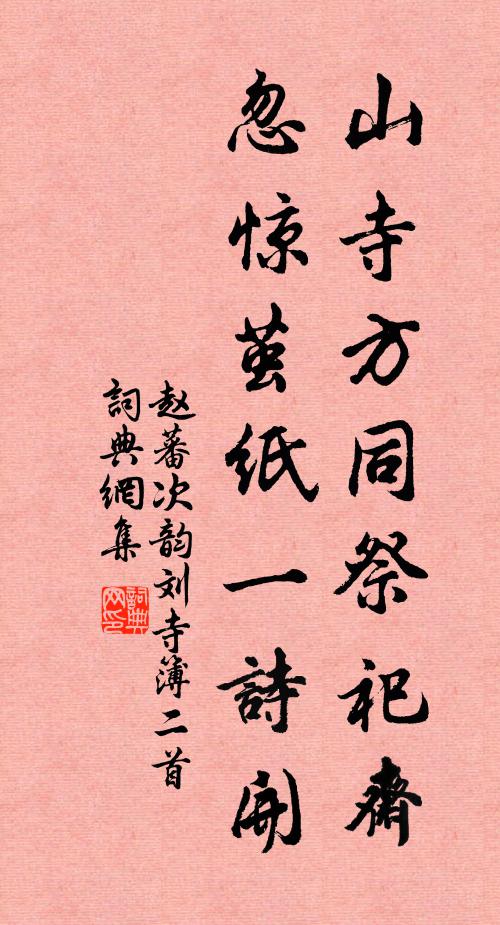 山寺方同祭祀齋
忽惊茧纸一詩開
赵蕃次韵刘寺簿二首
詞典網集
詞典网印